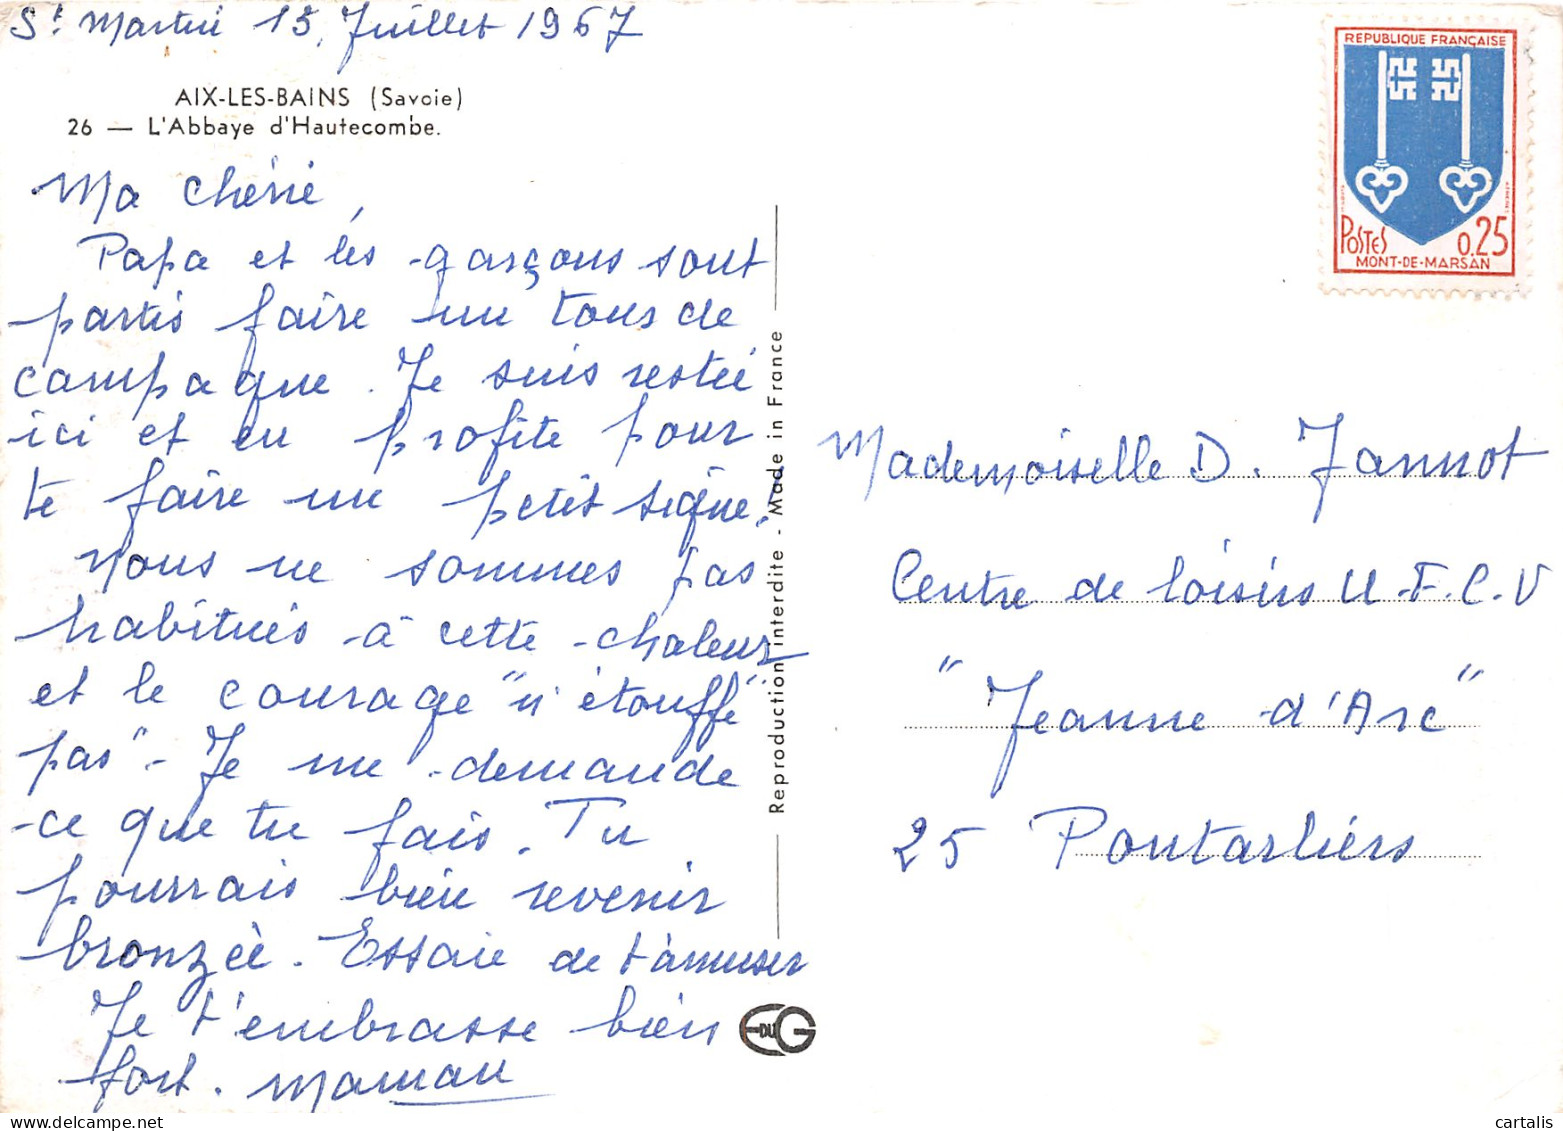 St Martin 13 Juillet 1967
AIX-LES-BAINS (Savoie)
26 — L'Abbaye d'Hautecombe.
Ma chérie,
Papa et les garçons sont
partis faire un tour de
campagne. Je suis restée
ici et en profite pour
te faire un petit signe.
Nous ne sommes pas
habitués à cette chaleur
et le courage "n'étouffe"
pas" - Je me demande
ce que tu fais. Tu
pourrais bien revenir
bronzée. Essaie de t'amuser
Je t'embrasse bien
fort. Maman
Reproduction interdite - Made in France
EDUG
REPUBLIQUE FRANÇAISE
POSTES 0.25
MONT-DE-MARSAN
Mademoiselle D. Jannot
Centre de loisirs U.F.C.V
"Jeanne d'Arc"
25 Pontarliers
cartalis